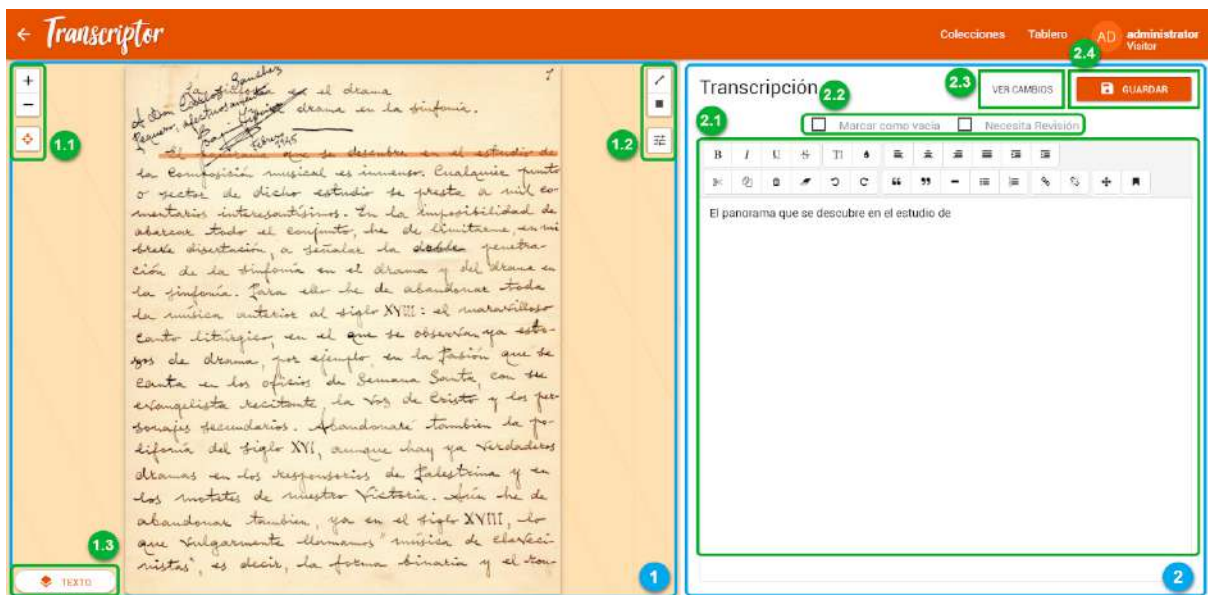 ← Transcriptor
Colecciones Tablero AD administrator
Visitor
2.4
1.1
1.2
1.3
TEXTO
1
A Don Sanchez
Pequero, afectuosamente
Febrero 1945
1
La sinfonía en el drama
y el drama en la sinfonía.
El panorama que se descubre en el estudio de
la composición musical es inmenso. Cualquier punto
o sector de dicho estudio se presta a mil co-
mentarios interesantísimos. En la imposibilidad de
abarcar todo el conjunto, he de limitarme, en mi
breve disertación, a señalar la doble penetra-
ción de la sinfonía en el drama y del drama en
la sinfonía. Para ello he de abandonar toda
la música anterior al siglo XVIII: el maravilloso
canto litúrgico, en el que se observan ya esbo-
zos de drama, por ejemplo, en la Pasión que se
canta en los oficios de Semana Santa, con su
evangelista recitante, la voz de Cristo y los per-
sonajes secundarios. Abandonaré también la po-
lifonía del siglo XVI, aunque hay ya verdaderos
dramas en los responsorios de Palestrina y en
los motetes de nuestro Victoria. Aún he de
abandonar también, ya en el siglo XVIII, lo
que vulgarmente llamamos "música de claveci-
nistas", es decir, la forma binaria y el ron-
Transcripción
2.2
2.3
VER CAMBIOS
GUARDAR
2.1
Marcar como vacía Necesita Revisión
B I U S TI
El panorama que se descubre en el estudio de
2